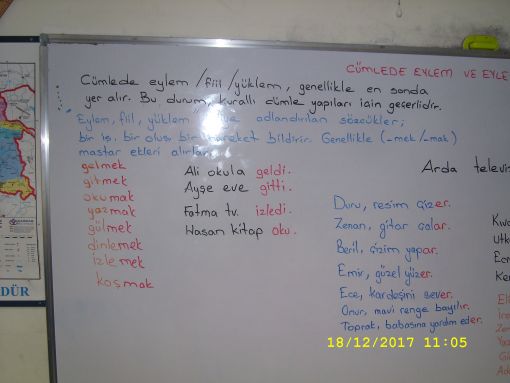 CÜMLEDE EYLEM VE EYLE
Cümlede eylem / fiil / yüklem, genellikle en sonda
yer alır. Bu durum, kurallı cümle yapıları için geçerlidir.
Eylem, fiil, yüklem adlandırılan sözcükler;
bir iş, bir oluş bir hareket bildirir. Genellikle (-mek/-mak)
mastar ekleri alırlar.
gelmek
gitmek
okumak
yazmak
gülmek
dinlemek
izlemek
koşmak
Ali okula geldi.
Ayşe eve gitti.
Fatma tv. izledi.
Hasan kitap oku.
Arda televiz
Duru, resim çizer.
Zenan, gitar çalar.
Beril, çizim yapar.
Emir, güzel yüzer.
Ece, kardeşini sever.
Onur, mavi renge bayılır.
Toprak, babasına yardım eder.
Kıva
Utku
Ecri
Ker
DÜR
18/12/2017 11:05